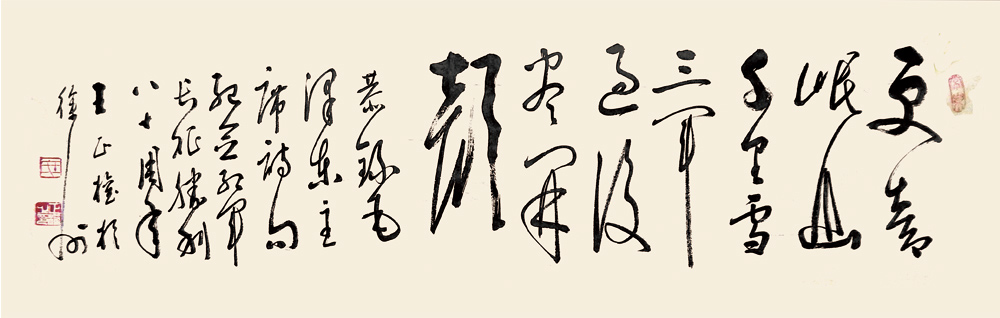 更喜
岷山
千里雪
三军
过后
尽开
颜
恭录毛
泽东主
席诗句
纪念红军
长征胜利
八十周年
王正於
徐州